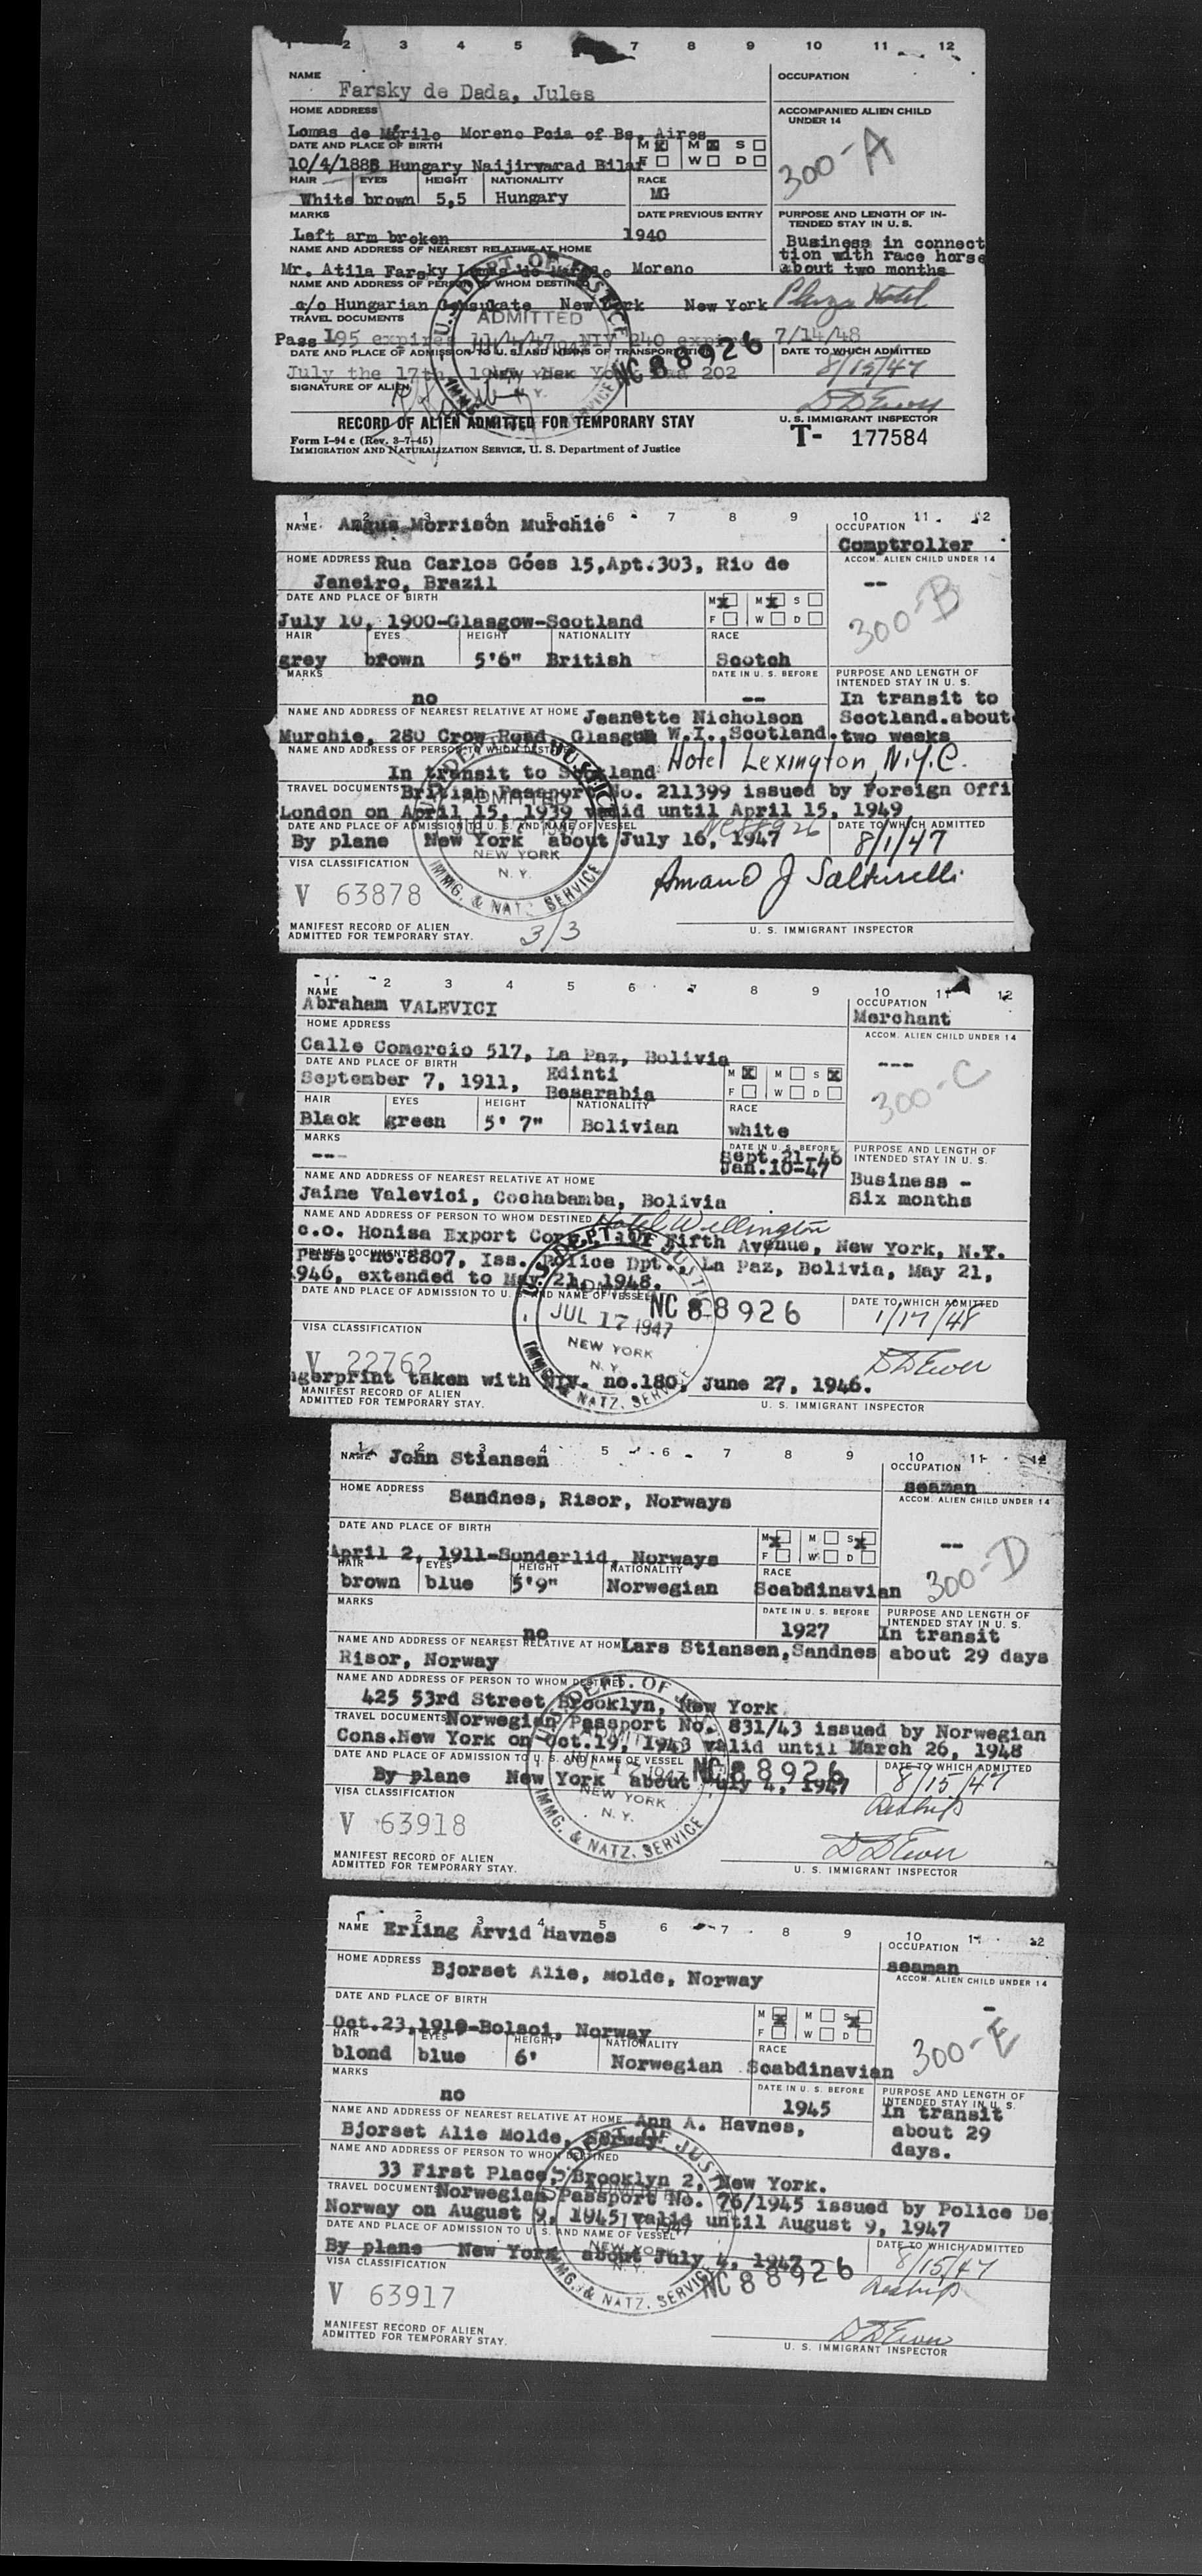 1 2 3 4 5 7 8 9 10 11 12
NAME
Farsky de Dada, Jules
OCCUPATION
HOME ADDRESS
Lomas de Mirilo Moreno Pcia of Bs. Aires
ACCOMPANIED ALIEN CHILD UNDER 14
DATE AND PLACE OF BIRTH
M X F M X S W D
10/4/1888 Hungary Naijirvarad Bilar
300-A
HAIR EYES HEIGHT NATIONALITY RACE
White brown 5,5 Hungary MG
MARKS DATE PREVIOUS ENTRY
Left arm broken 1940
PURPOSE AND LENGTH OF IN-
TENDED STAY IN U. S.
Business in connect
tion with race horse
about two months
NAME AND ADDRESS OF NEAREST RELATIVE AT HOME
Mr. Atila Farsky Lomas de Moreno
NAME AND ADDRESS OF PERSON TO WHOM DESTINED
c/o Hungarian Consukate New York New York Plaza Hotel
TRAVEL DOCUMENTS
Pass 195 expires 11/4/47 NIV 240 expires 7/14/48
DATE AND PLACE OF ADMISSION TO U. S. AND MEANS OF TRANSPORTATION
July the 17th, 1947 New York 202
NC 88926
DATE TO WHICH ADMITTED
8/15/47
SIGNATURE OF ALIEN
D D Ewer
RECORD OF ALIEN ADMITTED FOR TEMPORARY STAY
U. S. IMMIGRANT INSPECTOR
Form I-94 c (Rev. 3-7-45)
IMMIGRATION AND NATURALIZATION SERVICE, U. S. Department of Justice
T- 177584
U.S. DEPT. OF JUSTICE
ADMITTED
NEW YORK
N. Y.
IMMG. & NATZ. SERVICE
1 2 3 4 5 6 7 8 9 10 11 12
NAME Angus Morrison Murchie
OCCUPATION
Comptroller
HOME ADDRESS Rua Carlos Góes 15,Apt.303, Rio de
Janeiro, Brazil
ACCOM. ALIEN CHILD UNDER 14
--
DATE AND PLACE OF BIRTH
M X F M X S W D
July 10, 1900-Glasgow-Scotland
300-B
HAIR EYES HEIGHT NATIONALITY RACE
grey brown 5'6" British Scotch
MARKS DATE IN U. S. BEFORE
no --
PURPOSE AND LENGTH OF
INTENDED STAY IN U. S.
In transit to
Scotland.about
two weeks
NAME AND ADDRESS OF NEAREST RELATIVE AT HOME Jeanette Nicholson
Murchie, 280 Crow Road, Glasgow W.I.,Scotland.
NAME AND ADDRESS OF PERSON TO WHOM DESTINED
In transit to Scotland Hotel Lexington, N.Y.C.
TRAVEL DOCUMENTS British Passport No. 211399 issued by Foreign Offi
London on April 15, 1939 valid until April 15, 1949
DATE AND PLACE OF ADMISSION TO U. S. AND NAME OF VESSEL
NC 88926
DATE TO WHICH ADMITTED
By plane New York about July 16, 1947 8/1/47
VISA CLASSIFICATION
V 63878
MANIFEST RECORD OF ALIEN
ADMITTED FOR TEMPORARY STAY.
3/3
U. S. IMMIGRANT INSPECTOR
ADMITTED
NEW YORK
N. Y.
IMMG. & NATZ. SERVICE
1 2 3 4 5 6 7 8 9 10 11 12
NAME
Abraham VALEVICI
OCCUPATION
Merchant
HOME ADDRESS
Calle Comercio 517, La Paz, Bolivia
ACCOM. ALIEN CHILD UNDER 14
---
DATE AND PLACE OF BIRTH
M X F M S X W D
September 7, 1911, Edinti
Besarabia
300-C
HAIR EYES HEIGHT NATIONALITY RACE
Black green 5' 7" Bolivian white
MARKS DATE IN U. S. BEFORE
---
Sept.21-46
Jan.10-47
PURPOSE AND LENGTH OF
INTENDED STAY IN U. S.
Business -
Six months
NAME AND ADDRESS OF NEAREST RELATIVE AT HOME
Jaime Valevici, Cochabamba, Bolivia
NAME AND ADDRESS OF PERSON TO WHOM DESTINED Hotel Wellington
c.o. Honisa Export Corp. Fifth Avenue, New York, N.Y.
TRAVEL DOCUMENTS
Pass. no.8807, Iss. Police Dpt., La Paz, Bolivia, May 21,
946, extended to May 21, 1948.
DATE AND PLACE OF ADMISSION TO U. S. AND NAME OF VESSEL
NC 88926
DATE TO WHICH ADMITTED
1/17/48
VISA CLASSIFICATION
V 22762
D D Ewer
gerprint taken with NIV. no.180, June 27, 1946.
MANIFEST RECORD OF ALIEN
ADMITTED FOR TEMPORARY STAY.
U. S. IMMIGRANT INSPECTOR
U. S. DEPT. OF JUSTICE
JUL 17 1947
NEW YORK
N. Y.
IMMG. & NATZ. SERVICE
1 2 3 4 5 6 7 8 9 10 11 12
NAME John Stiansen
OCCUPATION
seaman
HOME ADDRESS
Sandnes, Risor, Norways
ACCOM. ALIEN CHILD UNDER 14
--
DATE AND PLACE OF BIRTH
M X F M S X W D
April 2, 1911-Sonderlid, Norways
300-D
HAIR EYES HEIGHT NATIONALITY RACE
brown blue 5'9" Norwegian Scabdinavian
MARKS DATE IN U. S. BEFORE
no 1927
PURPOSE AND LENGTH OF
INTENDED STAY IN U. S.
In transit
about 29 days
NAME AND ADDRESS OF NEAREST RELATIVE AT HOM Lars Stiansen,Sandnes
Risor, Norway
NAME AND ADDRESS OF PERSON TO WHOM DESTINED
425 53rd Street Brooklyn, New York
TRAVEL DOCUMENTS Norwegian Passport No. 831/43 issued by Norwegian
Cons.New York on Oct.19, 1943 valid until March 26, 1948
DATE AND PLACE OF ADMISSION TO U. S. AND NAME OF VESSEL
NC 88926
DATE TO WHICH ADMITTED
By plane New York about July 4, 1947 8/15/47
Reship
VISA CLASSIFICATION
V 63918
D D Ewer
MANIFEST RECORD OF ALIEN
ADMITTED FOR TEMPORARY STAY.
U. S. IMMIGRANT INSPECTOR
DEPT. OF JUSTICE
JUL 17 1947
NEW YORK
N. Y.
IMMG. & NATZ. SERVICE
1 2 3 4 5 6 7 8 9 10 11 12
NAME Erling Arvid Havnes
OCCUPATION
seaman
HOME ADDRESS
Bjorset Alie, Molde, Norway
ACCOM. ALIEN CHILD UNDER 14
-
DATE AND PLACE OF BIRTH
M X F M S X W D
Oct.23,1919-Bolsoi, Norway
300-E
HAIR EYES HEIGHT NATIONALITY RACE
blond blue 6' Norwegian Scabdinavian
MARKS DATE IN U. S. BEFORE
no 1945
PURPOSE AND LENGTH OF
INTENDED STAY IN U. S.
In transit
about 29
days.
NAME AND ADDRESS OF NEAREST RELATIVE AT HOME Ann A. Havnes,
Bjorset Alie Molde, Norway
NAME AND ADDRESS OF PERSON TO WHOM DESTINED
33 First Place, Brooklyn 2, New York.
TRAVEL DOCUMENTS Norwegian Passport No. 76/1945 issued by Police De
Norway on August 9, 1945 valid until August 9, 1947
DATE AND PLACE OF ADMISSION TO U. S. AND NAME OF VESSEL
DATE TO WHICH ADMITTED
By plane New York about July 4, 1947 8/15/47
NC 88926
Reship
VISA CLASSIFICATION
V 63917
D D Ewer
MANIFEST RECORD OF ALIEN
ADMITTED FOR TEMPORARY STAY.
U. S. IMMIGRANT INSPECTOR
DEPT. OF JUST
NEW YORK
N. Y.
IMMG. & NATZ. SERVICE